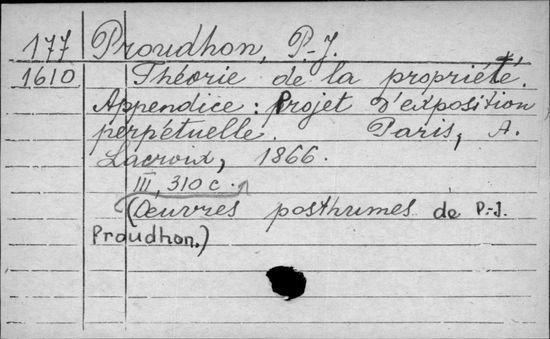 177 Proudhon, P.-J.
1610 Théorie de la propriété.
Appendice : Projet d'exposition
perpétuelle. Paris, A.
Lacroix, 1866.
III, 310 c.
(Œuvres posthumes de P.-J.
Proudhon.)